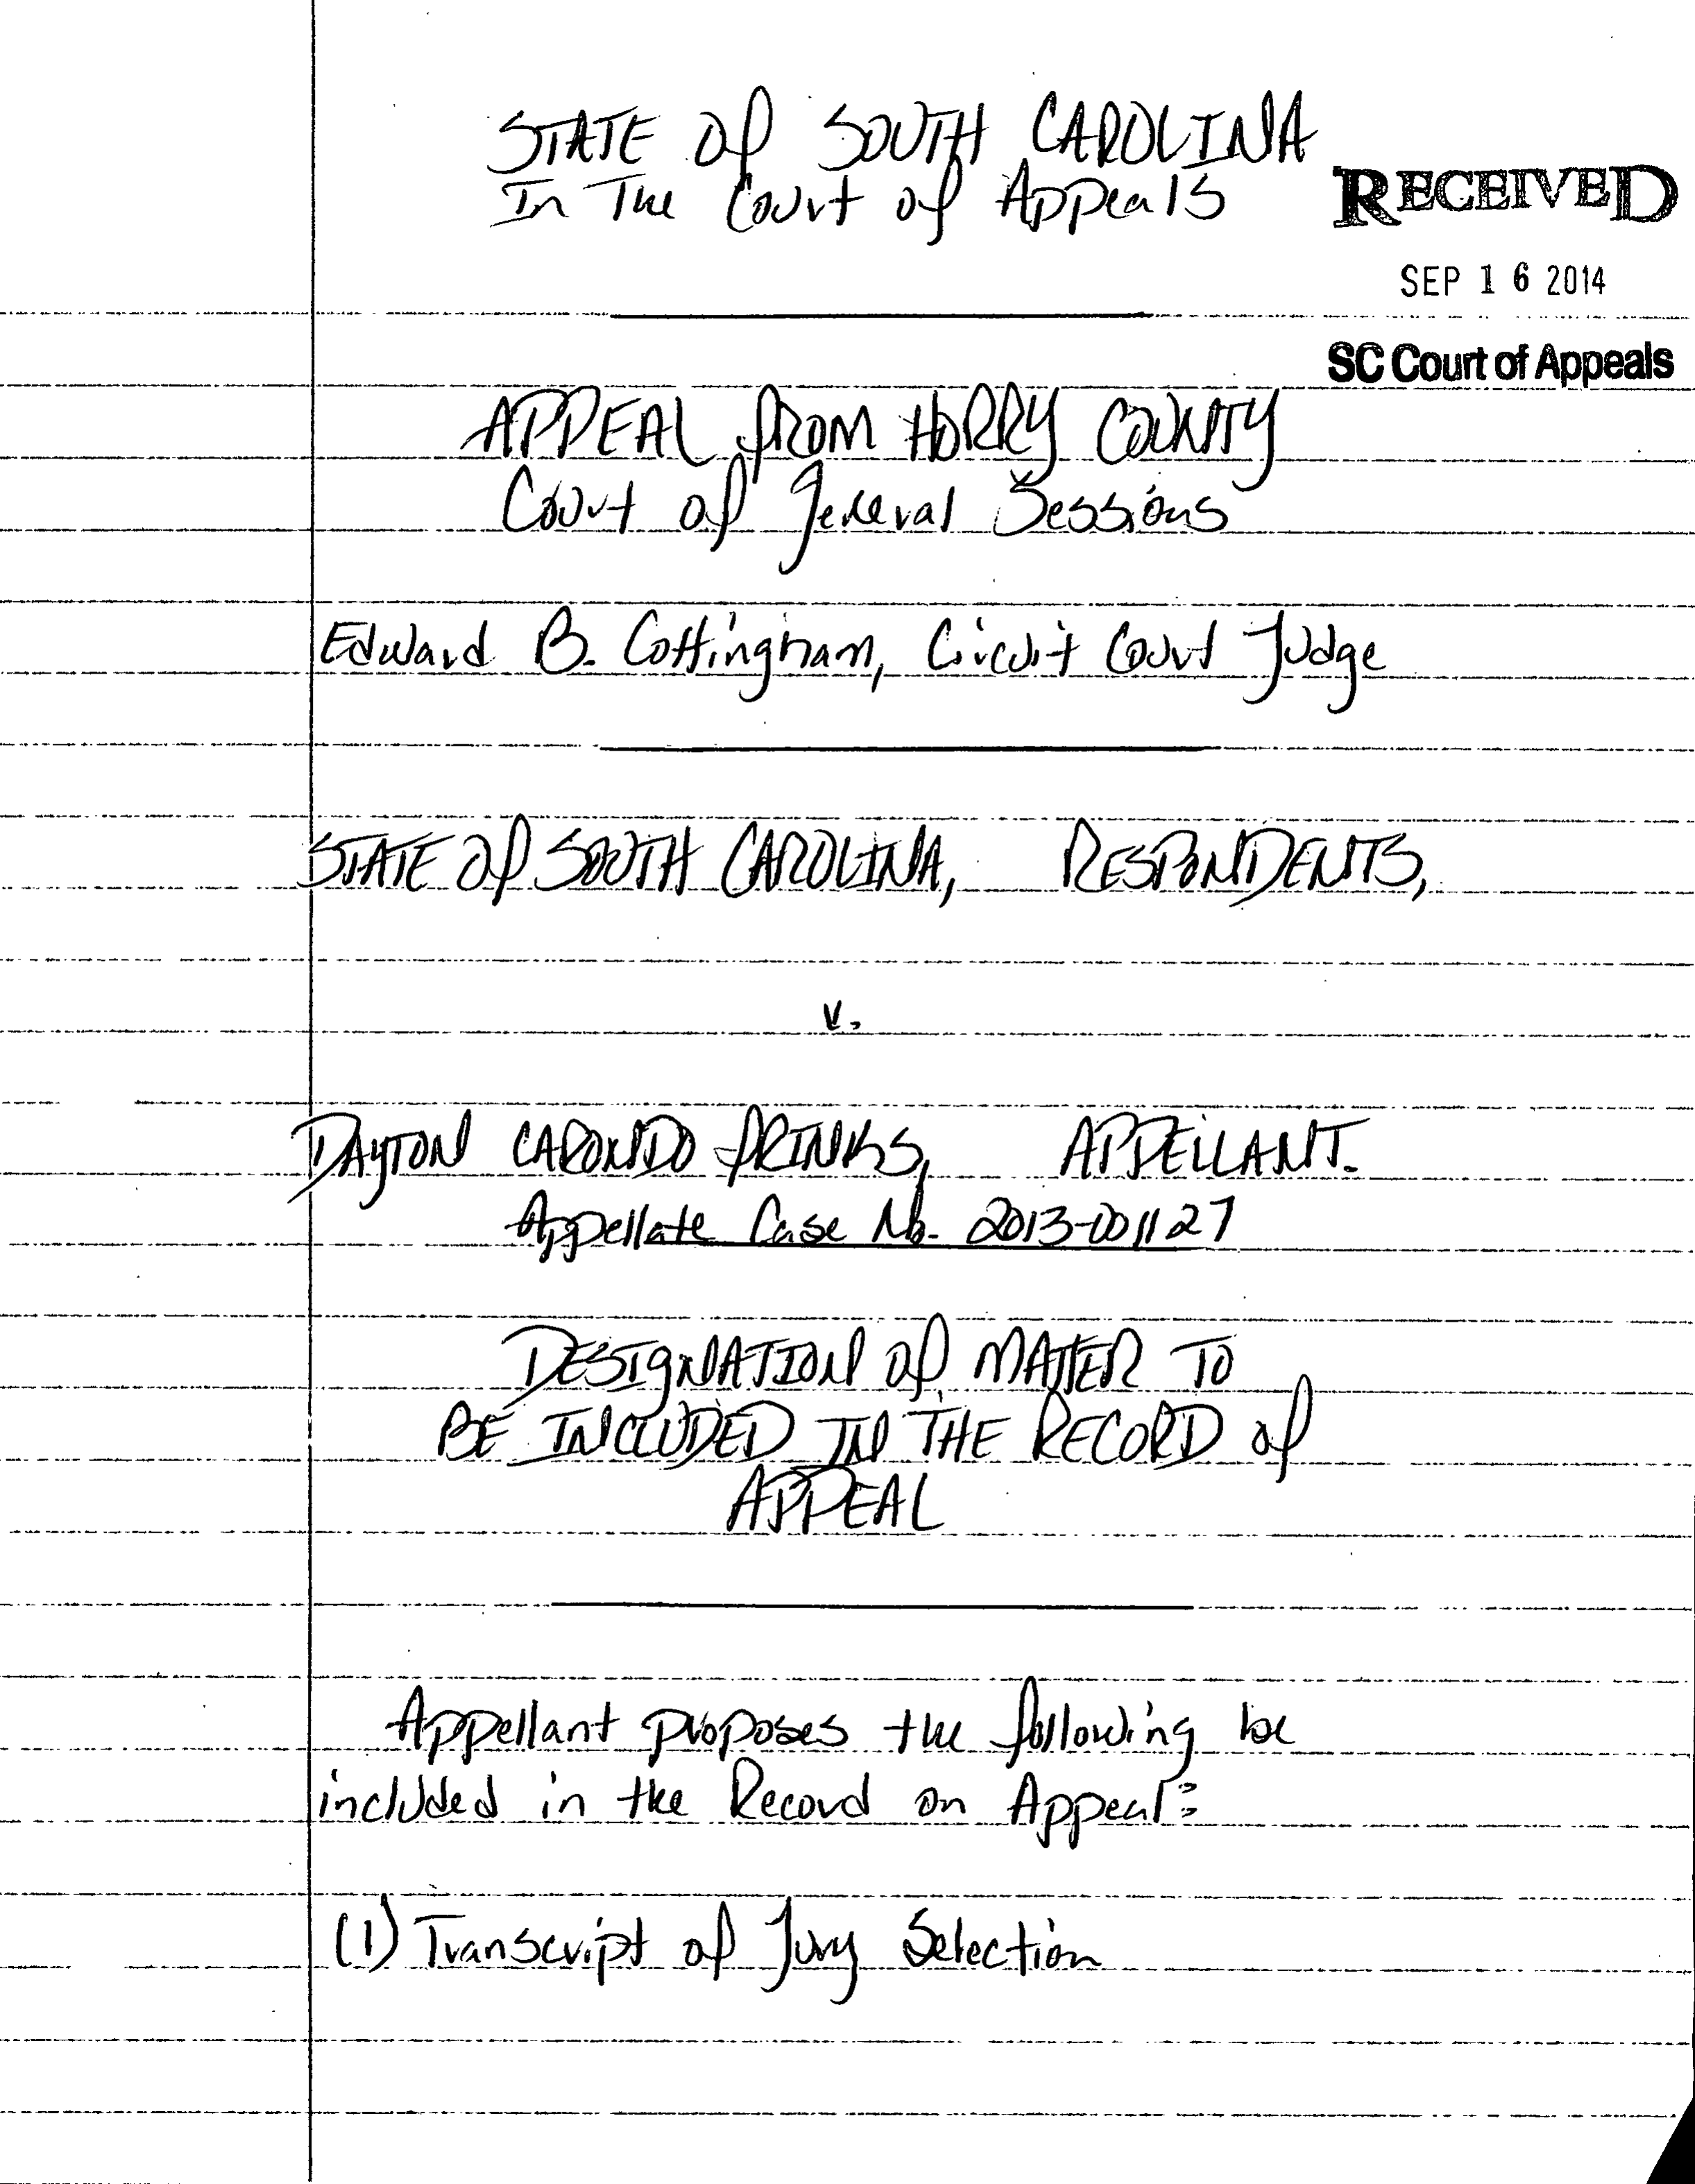 STATE of SOUTH CAROLINA
In The Court of Appeals
RECEIVED
SEP 16 2014
SC Court of Appeals
APPEAL from HORRY COUNTY
Court of General Sessions
Edward B. Cottingham, Circuit Court Judge
STATE of SOUTH CAROLINA, RESPONDENTS,
v.
DAYTON CARONDO fRINKS, APPELLANT.
Appellate Case No. 2013-001127
DESIGNATION of MATTER TO
BE INCLUDED IN THE RECORD of
APPEAL
Appellant proposes the following be
included in the Record on Appeal:
(1) Transcript of Jury Selection